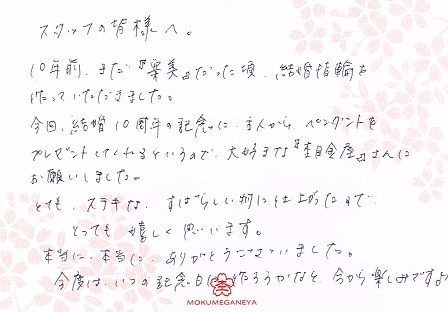 スタッフの皆様へ。
10年前、まだ『栗美』だった頃、結婚指輪を
作っていただきました。
今回、結婚10周年の記念に、主人から、ペンダントを
プレゼントしてくれるというので、大好きな『杢目金屋』さんに
お願いしました。
とても、ステキな、すばらしい物に仕上ったので
とっても嬉しく思います。
本当に、本当に、ありがとうございました。
今度は、いつの記念日に作ろうかなと、今から楽しみです
MOKUMEGANEYA